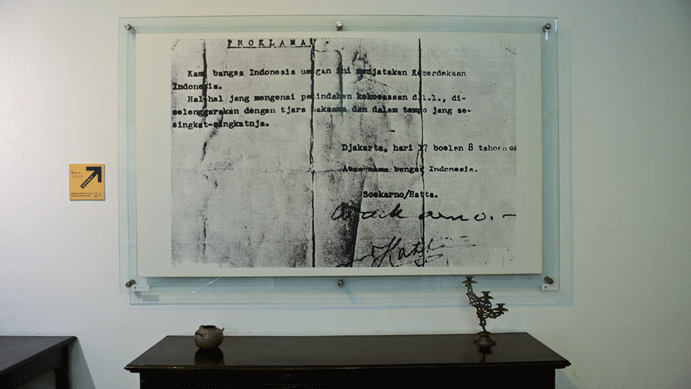 PROKLAMA
Kami bangsa Indonesia dengan ini menjatakan Kemerdekaan
Indonesia.
Hal-hal jang mengenai pemindahan kekoeasaan d.l.l., di-
selenggarakan dengan tjara saksama dan dalam tempo jang se-
singkat-singkatnja.
Djakarta, hari 17 boelan 8 tahoen 05
Atas nama bangsa Indonesia.
Soekarno/Hatta.